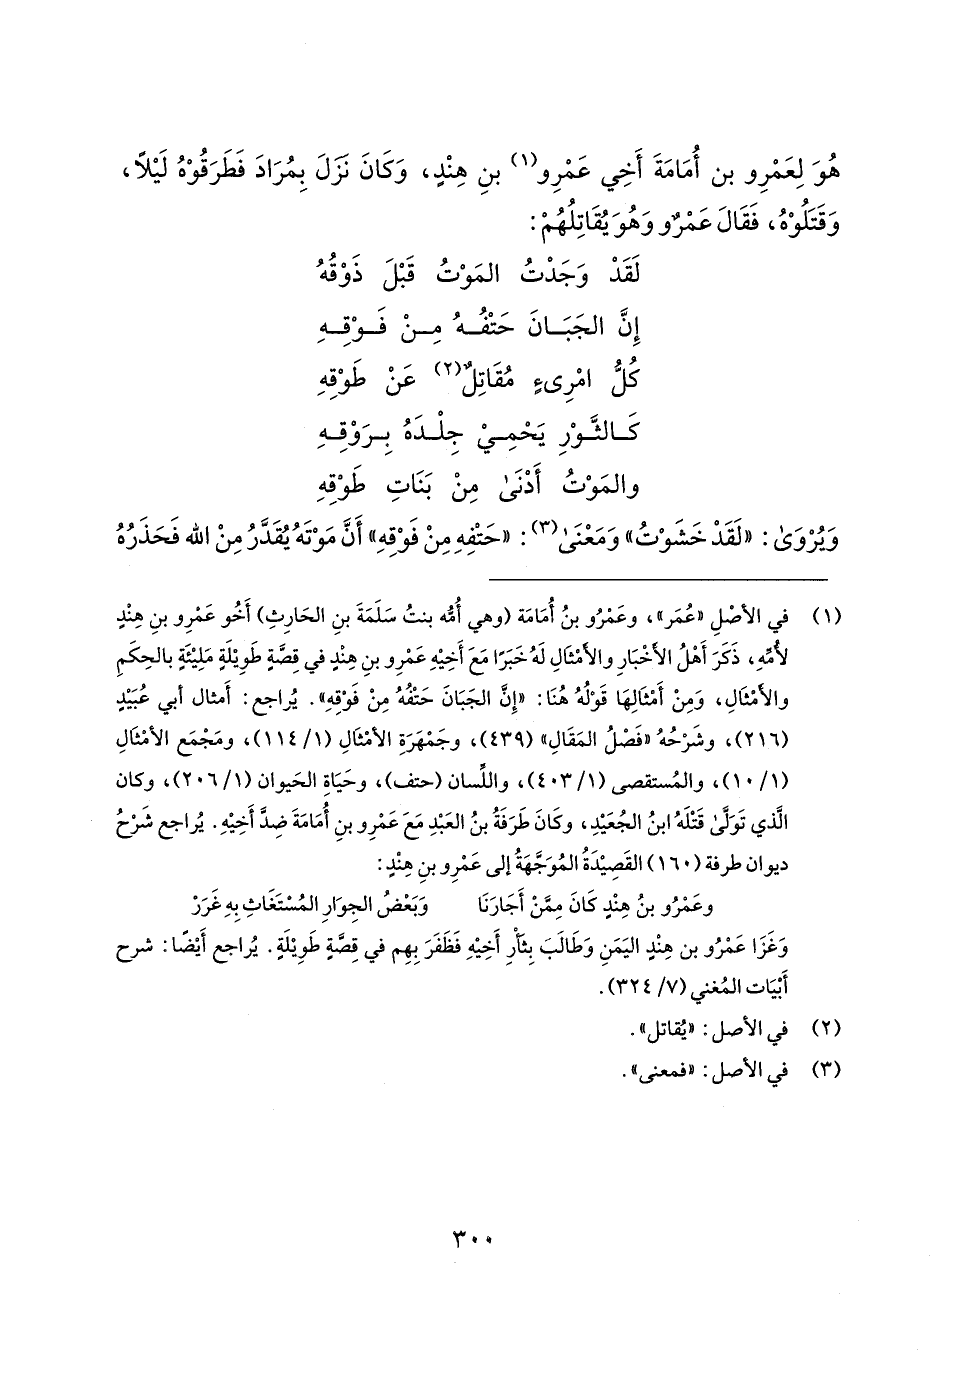 هُوَ لِعَمْرِو بن أُمَامَةَ أَخِي عَمْرِو(١) بنِ هِنْدٍ، وَكَانَ نَزَلَ بِمُرَادَ فَطَرَقُوْهُ لَيْلاً،
وَقَتَلُوْهُ، فَقَالَ عَمْرٌو وَهُوَ يُقَاتِلُهُمْ:
لَقَدْ وَجَدْتُ المَوْتُ قَبْلَ ذَوْقُهُ
إِنَّ الجَبَانَ حَتْفُهُ مِنْ فَوْقِهِ
كُلُّ امْرِىءٍ مُقَاتِلٌ(٢) عَنْ طَوْقِهِ
كَالثَّوْرِ يَحْمِيْ جِلْدَهُ بِرَوْقِهِ
والمَوْتُ أَدْنَىٰ مِنْ بَنَاتِ طَوْقِهِ
وَيُرْوَىٰ: «لَقَدْ حَسَوْتُ» وَمَعْنَىٰ(٣): «حَتْفِهِ مِنْ فَوْقِهِ» أَنَّ مَوْتَهُ يُقَدَّرُ مِنْ الله فَحَذَرُهُ
(١) في الأصْلِ «عُمَر»، وعَمْرُو بنُ أُمَامَة (وهي أُمُّه بنتُ سَلَمَةَ بنِ الحَارِثِ) أَخُو عَمْرِو بنِ هِنْدٍ
لأُمِّهِ، ذَكَرَ أَهْلُ الأَخْبَارِ والأَمْثَالِ لَهُ خَبَرًا مَعَ أَخِيْهِ عَمْرِو بنِ هِنْدٍ في قِصَّةٍ طَوِيْلَةٍ مَلِيْئَةٍ بالحِكَمِ
والأَمْثَالِ، وَمِنْ أَمْثَالِهَا قَوْلُهُ هُنَا: «إِنَّ الجَبَانَ حَتْفُهُ مِنْ فَوْقِهِ». يُراجع: أَمثال أبي عُبَيْدٍ
(٢١٦)، وشَرْحُهُ «فَصْلُ المَقَالِ» (٤٣٩)، وجَمْهَرَةِ الأمْثَالِ (١/ ١١٤)، ومَجْمَع الأمْثَالِ
(١/ ١٠)، والمُستقصى (١/ ٤٠٣)، واللِّسان (حتف)، وحَيَاةِ الحَيوان (١/ ٢٠٦)، وكان
الَّذي تَوَلَّىٰ قَتْلَهُ ابنُ الجُعَيْدِ، وكَانَ طَرَفَةُ بنُ العَبْدِ مَعَ عَمْرِو بنِ أُمَامَةَ ضِدَّ أَخِيْهِ. يُراجع شَرْحُ
ديوان طرفة (١٦٠) القَصِيْدَةُ المُوَجَّهَةُ إلى عَمْرِو بنِ هِنْدٍ:
وعَمْرُو بنُ هِنْدٍ كَانَ مِمَّنْ أَجَارَنَا وَبَعْضُ الجِوَارِ المُسْتَغَاثِ بِهِ غَرَرْ
وَغَزَا عَمْرُو بن هِنْدٍ اليَمَنِ وَطَالَبَ بِثَأْرِ أَخِيْهِ فَظَفَرَ بِهِم في قِصَّةٍ طَوِيْلَةٍ. يُراجع أَيْضًا: شرح
أَبْيَات المُغني (٧/ ٣٢٤).
(٢) في الأصل: «يُقاتل».
(٣) في الأصل: «فمعنى».
٣٠٠